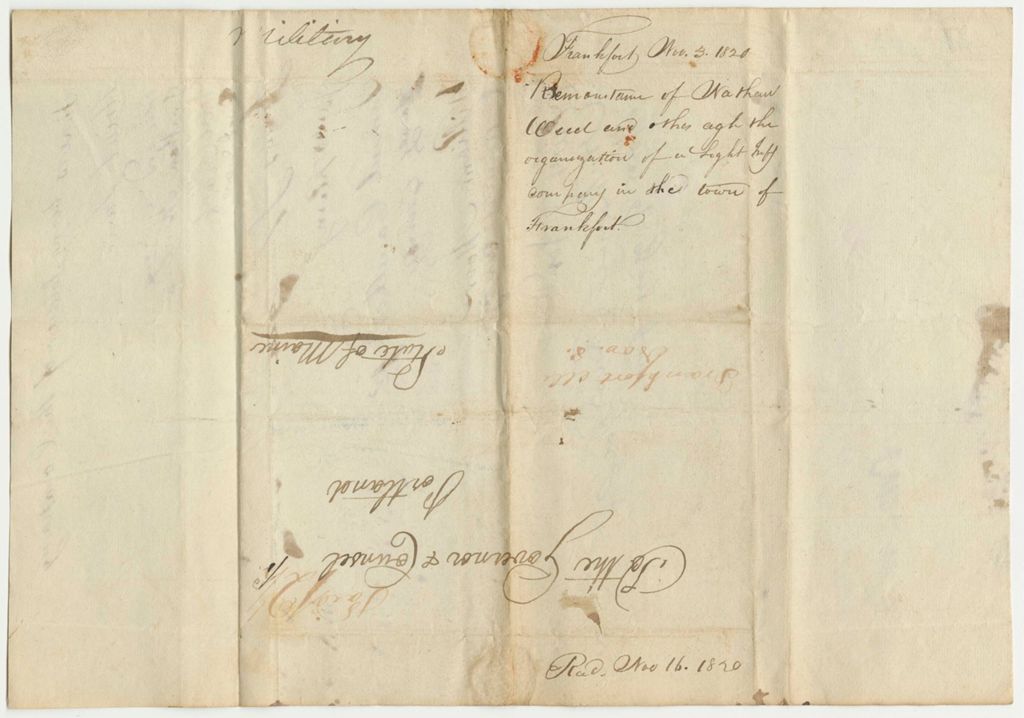 Military
Frankfort Nov. 3. 1820
Remonstrance of Nathan
Weed and others agst the
organization of a Light Infy
company in the town of
Frankfort.
State of Maine
Frankfort Me
Nov. 8.
Portland
To the Governor & Counsel
Recd, Nov 16. 1820